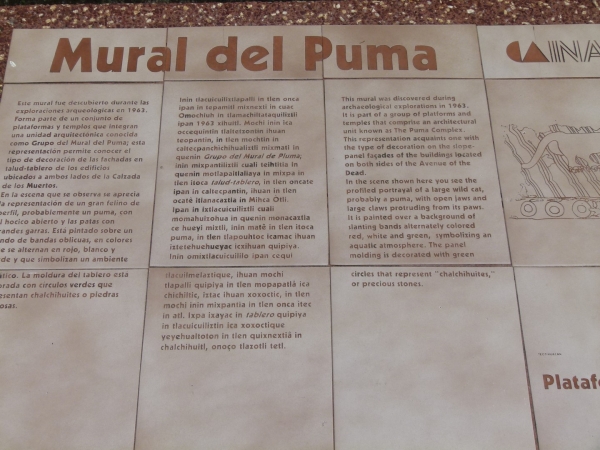 Mural del Puma
INA
Este mural fue descubierto durante las
exploraciones arqueológicas en 1963.
Forma parte de un conjunto de
plataformas y templos que integran
una unidad arquitectónica conocida
como Grupo del Mural del Puma; esta
representación permite conocer el
tipo de decoración de las fachadas en
talud-tablero de los edificios
ubicados a ambos lados de la Calzada
de los Muertos.
En la escena que se observa se aprecia
la representación de un gran felino de
perfil, probablemente un puma, con
hocico abierto y las patas con
grandes garras. Está pintado sobre un
ndo de bandas oblicuas, en colores
e se alternan en rojo, blanco y
de y que simbolizan un ambiente
ático. La moldura del tablero está
rada con círculos verdes que
esentan chalchihuites o piedras
osas.
Inin tlacuicuiliztlapalli in tlen onca
ipan in tepamitl mixnexti in cuac
Omochiuh in tlamachiliztaquilixtli
ipan 1963 xihuitl. Mochi inin ica
occequintin tlaltetzontin ihuan
teopantin, in tlen mochtin in
caltecpanchichihualiztli mixmati in
quenin Grupo del Mural de Pluma;
inin mixpantiliztli cuali teihtitia in
quenin motlapaltilaliaya in mixpa in
tlen itoca talud-tablero, in tlen oncate
ipan in caltecpantin, ihuan in tlen
ocaté itlanacaztla in Mihca Otli.
Ipan in ixtlacuiliztli cuali
momahuitzohua in quenin monacaztia
ce hueyi mixtli, inin maté in tlen itoca
puma, in tlen tlapouhtoc icamac ihuan
iztetehuehueyac icxihuan quipiya.
Inin omixtlacuicuililo ipan cequi
tlacuilmelaztique, ihuan mochi
tlapalli quipiya in tlen mopapatla ica
chichiltic, iztac ihuan xoxoctic, in tlen
mochi inin mixpantia in tlen onca itec
in atl. Ixpa ixayac in tablero quipiya
in tlacuicuiliztin ica xoxoctique
yeyehualtoton in tlen quixnextiá in
chalchihuitl, onoço tlazotli tetl.
This mural was discovered during
archaeological explorations in 1963.
It is part of a group of platforms and
temples that comprise an architectural
unit known as The Puma Complex.
This representation acquaints one with
the type of decoration on the slope-
panel façades of the buildings located
on both sides of the Avenue of the
Dead.
In the scene shown here you see the
profiled portrayal of a large wild cat,
probably a puma, with open jaws and
large claws protruding from its paws.
It is painted over a background of
slanting bands alternately colored
red, white and green, symbolizing an
aquatic atmosphere. The panel
molding is decorated with green
circles that represent "chalchihuites,"
or precious stones.
Plataf